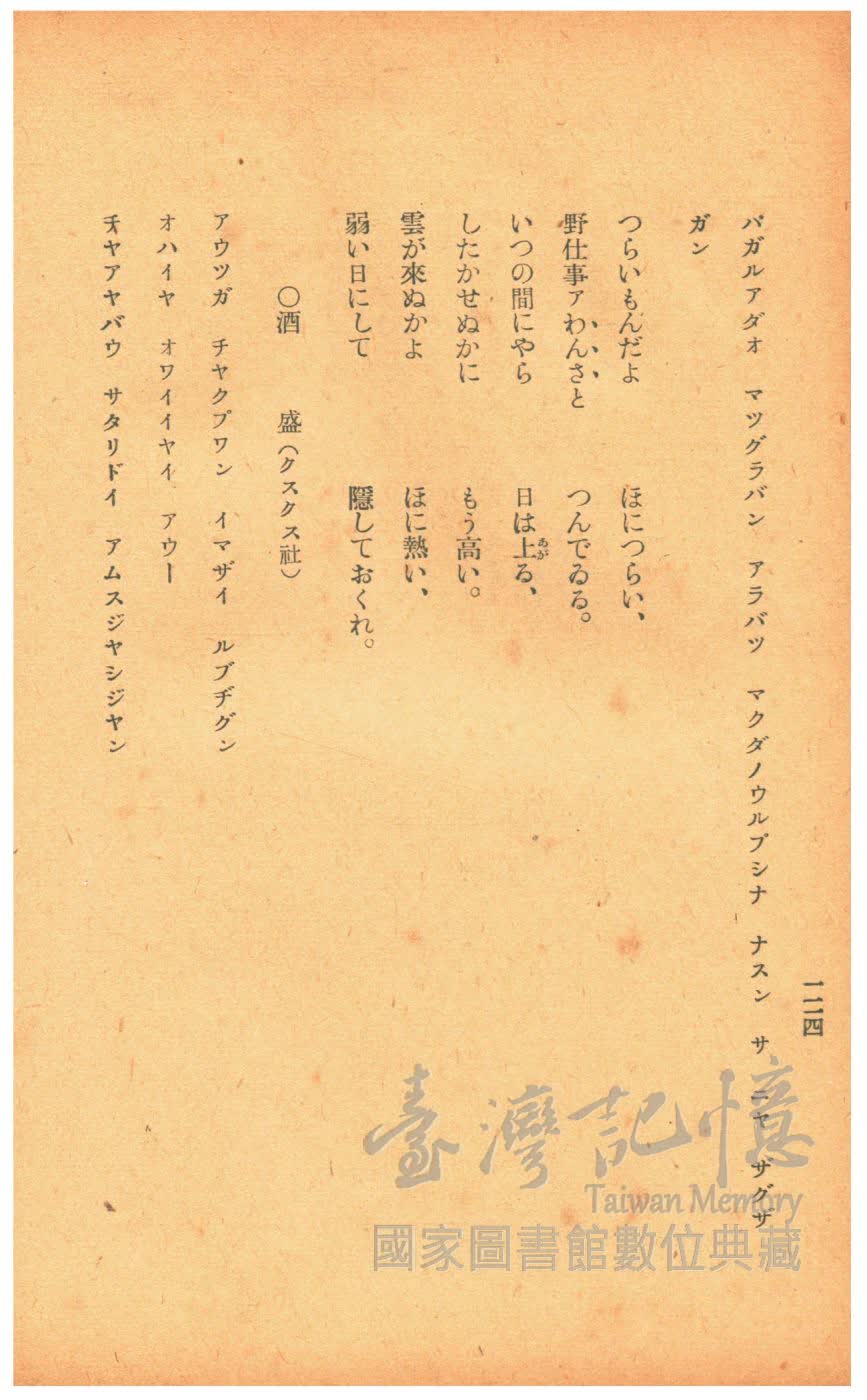 一二四
パガルアダオ マツグラバン アラバツ マクダノウルプシナ ナスン サ ニヤ ザグザ
ガン
つらいもんだよ ほにつらい、
野仕事ァわんさと つんでゐる。
いつの間にやら 日は上る、
あが
したかせぬかに もう高い。
雲が來ぬかよ ほに熱い、
弱い日にして 隱しておくれ。
〇酒 盛(クスクス社)
アウツガ チヤクプワン イマザイ ルブヂグン
オハイヤ オワイイヤイ アウー
チヤアヤバウ サタリドイ アムスジヤシジヤン
臺灣記憶
Taiwan Memory
國家圖書館數位典藏